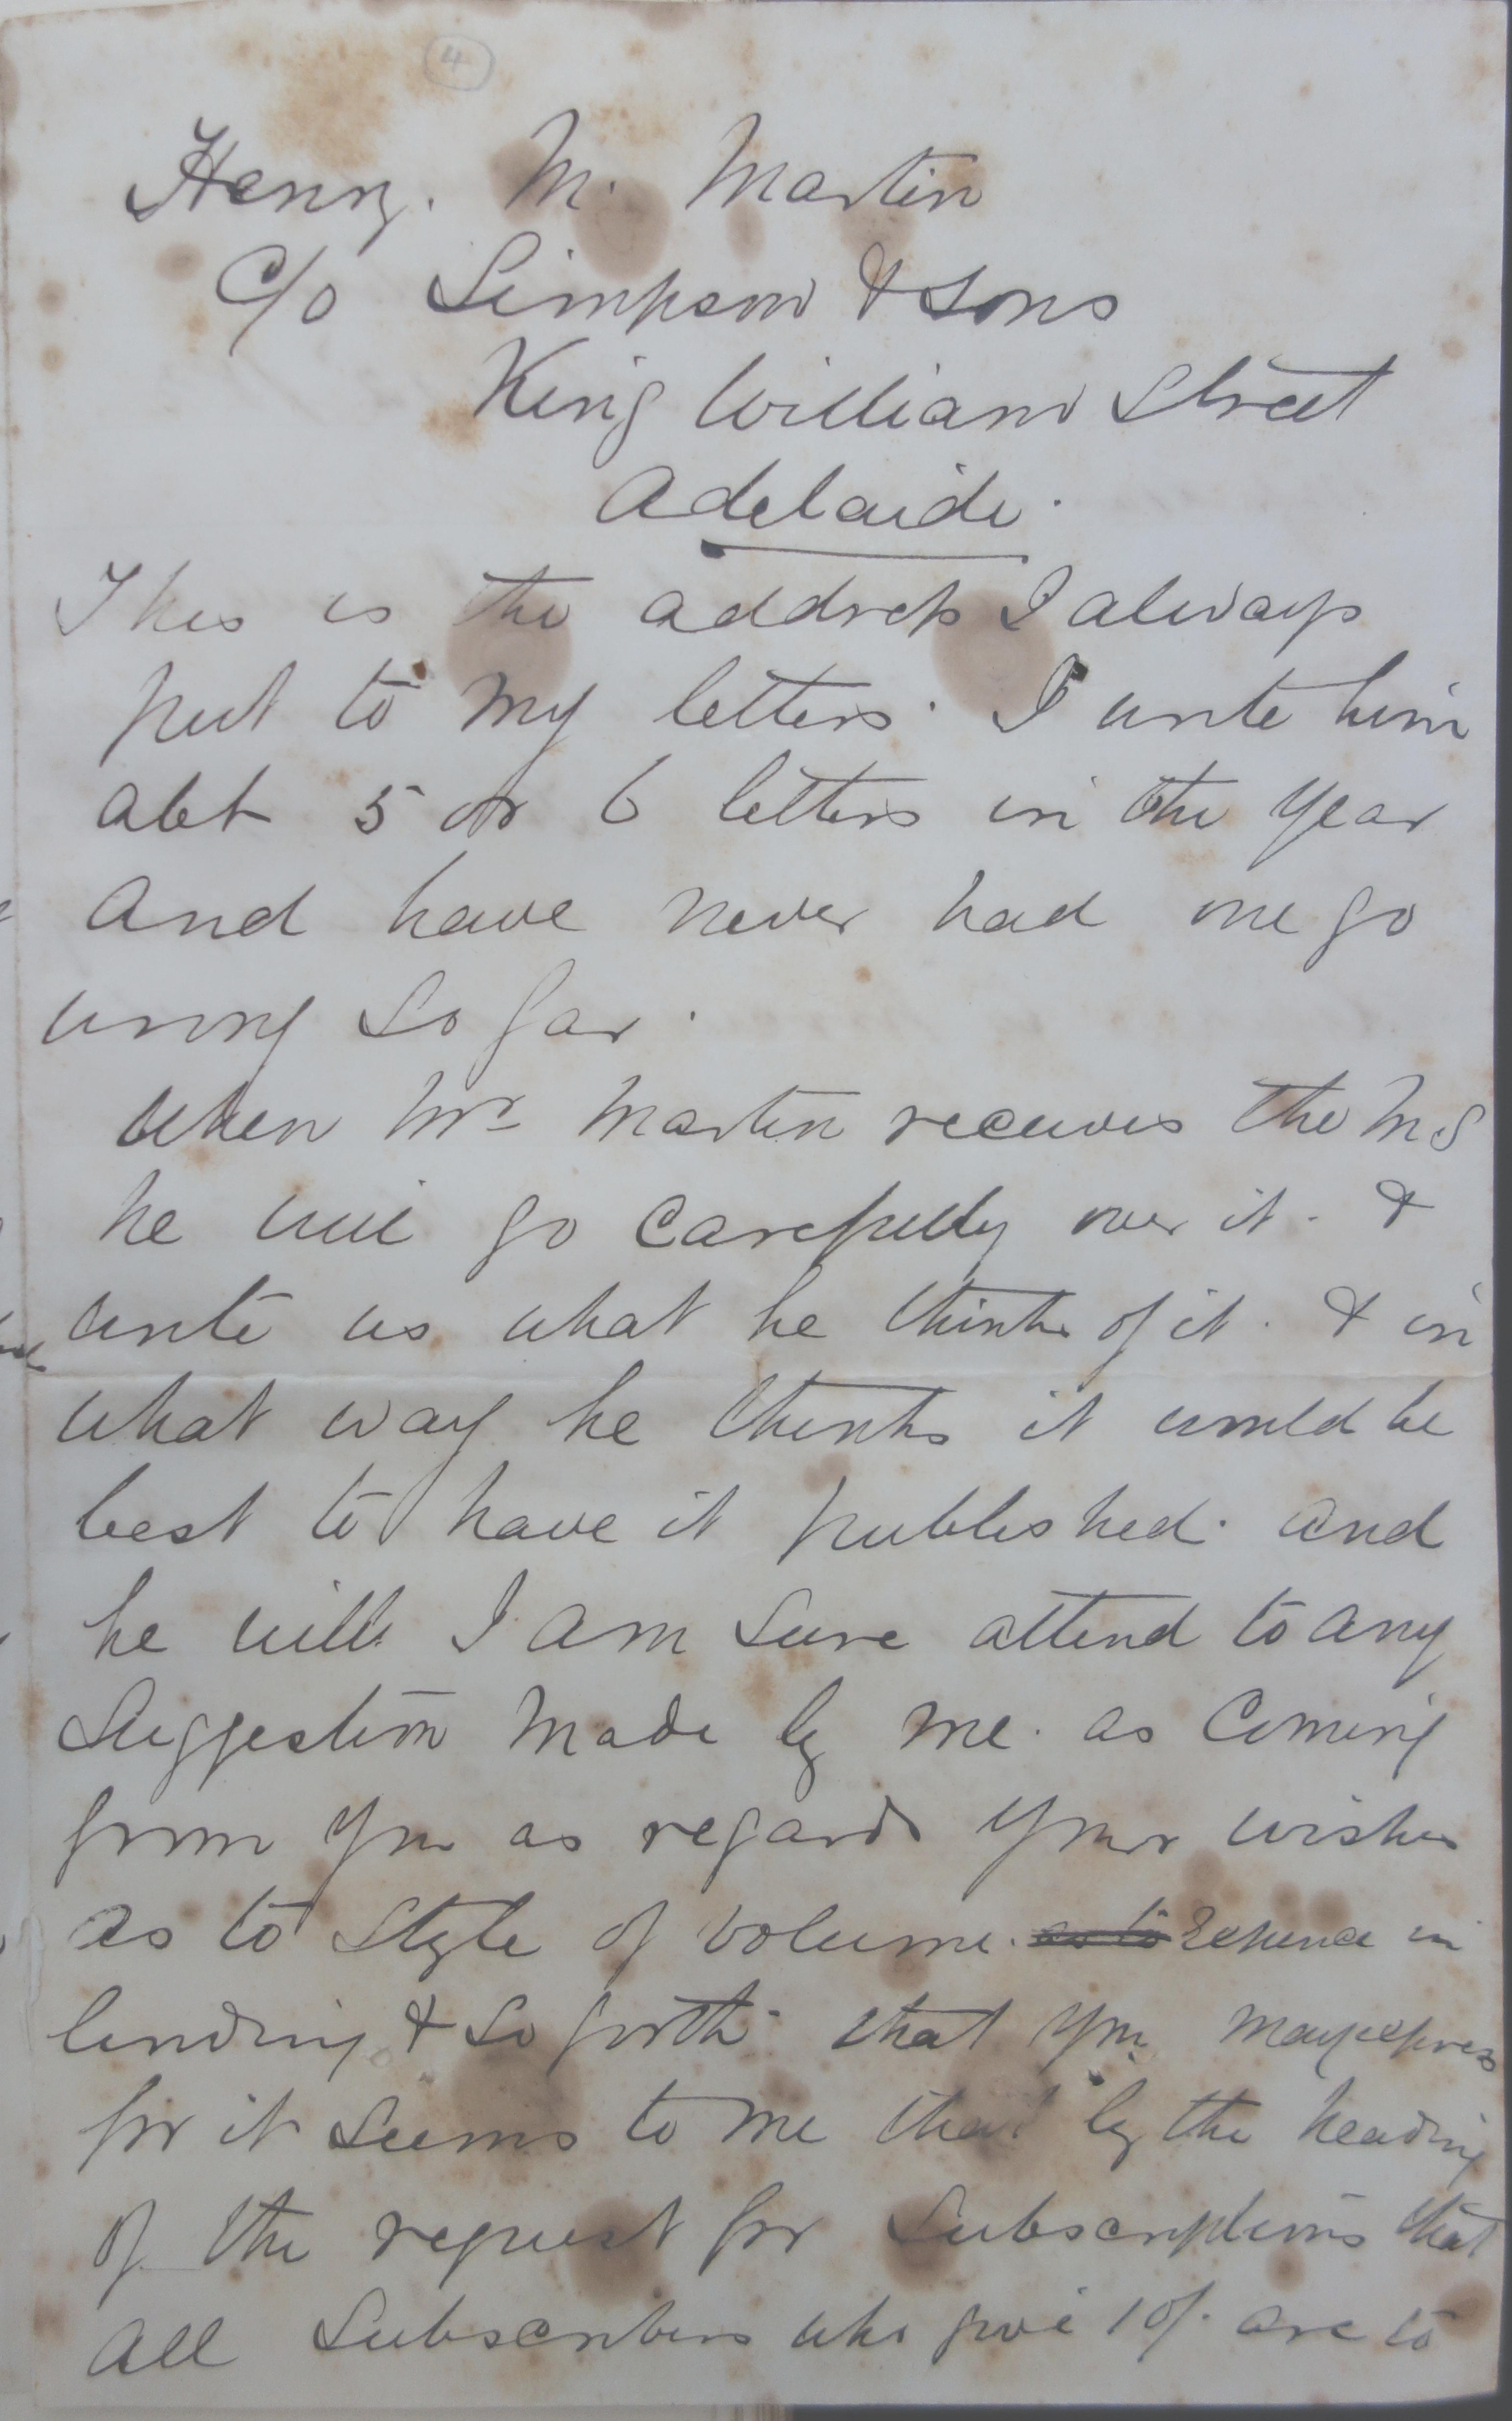 4
Henry. M. Martin
C/o Simpson & Sons
King William Street
Adelaide.
This is the address I always
put to my letters. I write him
abt 5 or 6 letters in the year
and have never had one go
wrong so far.
When Mr Martin receives the MS
he will go carefully over it. &
write us what he thinks of it. & in
what way he thinks it would be
best to have it published. and
he will I am sure attend to any
suggestion made by me. as coming
from you as regards your wishes
as to style of volume. as to in
binding & so forth. that you may express
for it seems to me that by the heading
of the request for subscriptions that
all subscribers who give 10/. are to